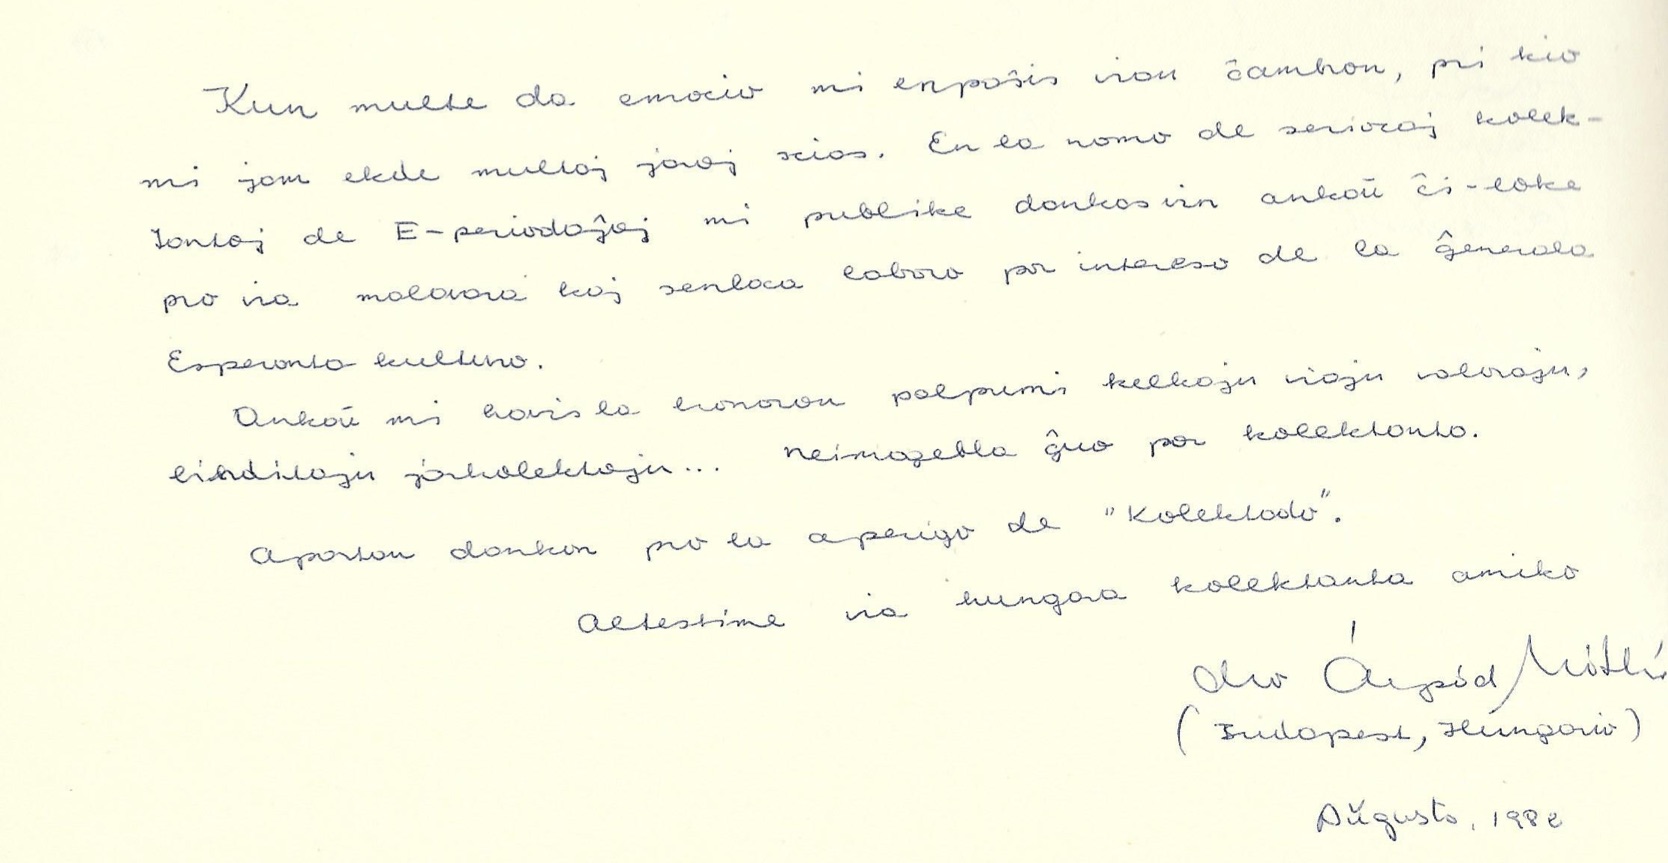 Kun multe da emocio mi enpaŝis vian ĉambron, pri kio
mi jam ekde multaj jaroj scias. En la nomo de seriozaj kolek-
tantoj de E-periodaĵoj mi publike dankas vin ankaŭ ĉi-loke
pro via malavara kaj senlaca laboro por intereso de la ĝenerala
Esperanto kulturo.
Ankaŭ mi havis la honoron palpumi kelkajn viajn valorajn,
binditajn jarkolektojn... Neimagebla ĝuo por kolektanto.
Apartan dankon pro la aperigo de "Kolektado".
Altestime via hungara kolektanta amiko
dro Árpád Máthé
(Budapest, Hungario)
Aŭgusto, 198